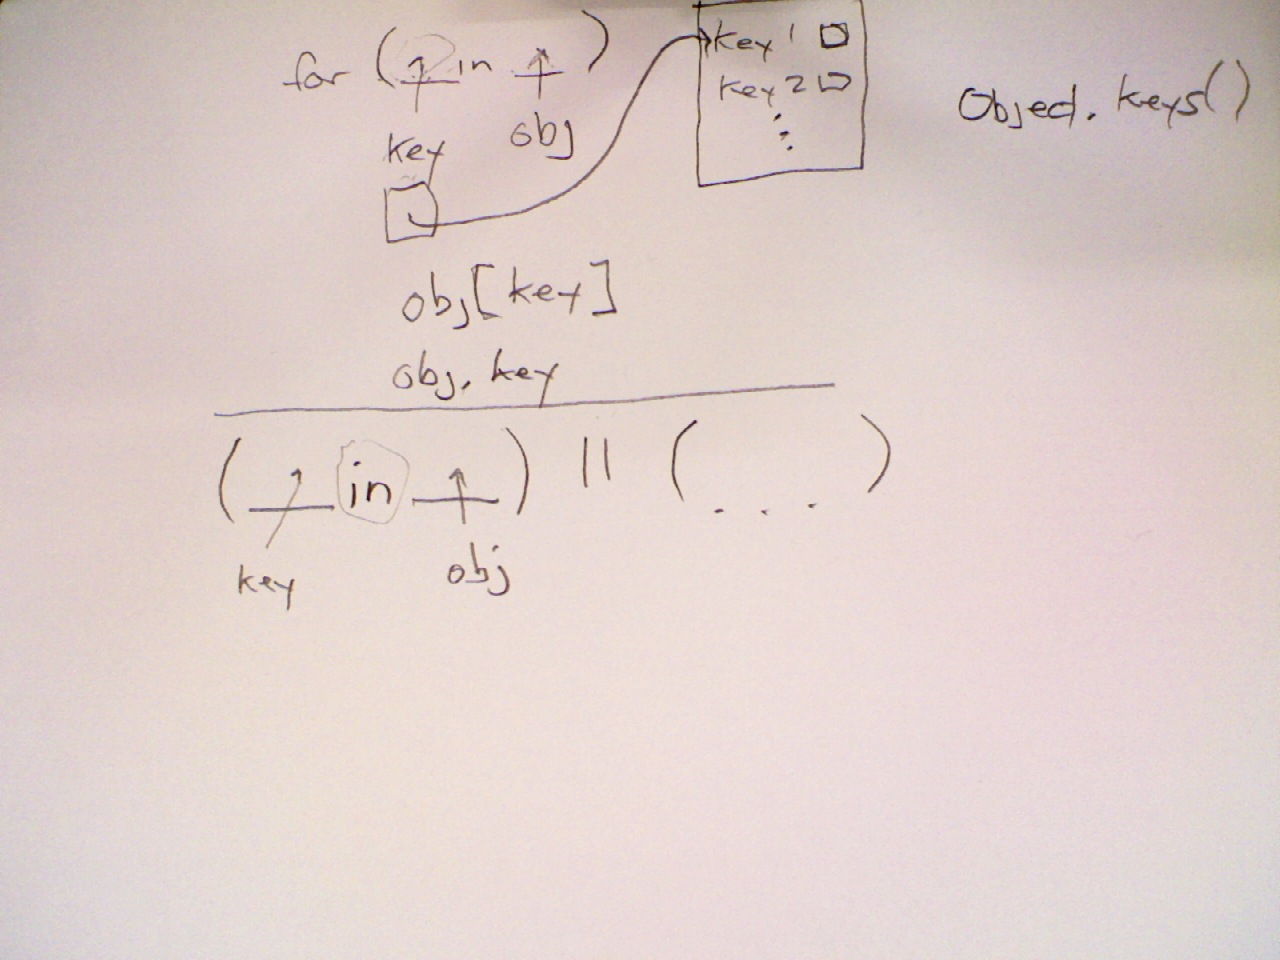 for ( in )
key obj
key 1
key 2
Object.keys()
obj[key]
obj.key
( in ) || ( . . . )
key obj